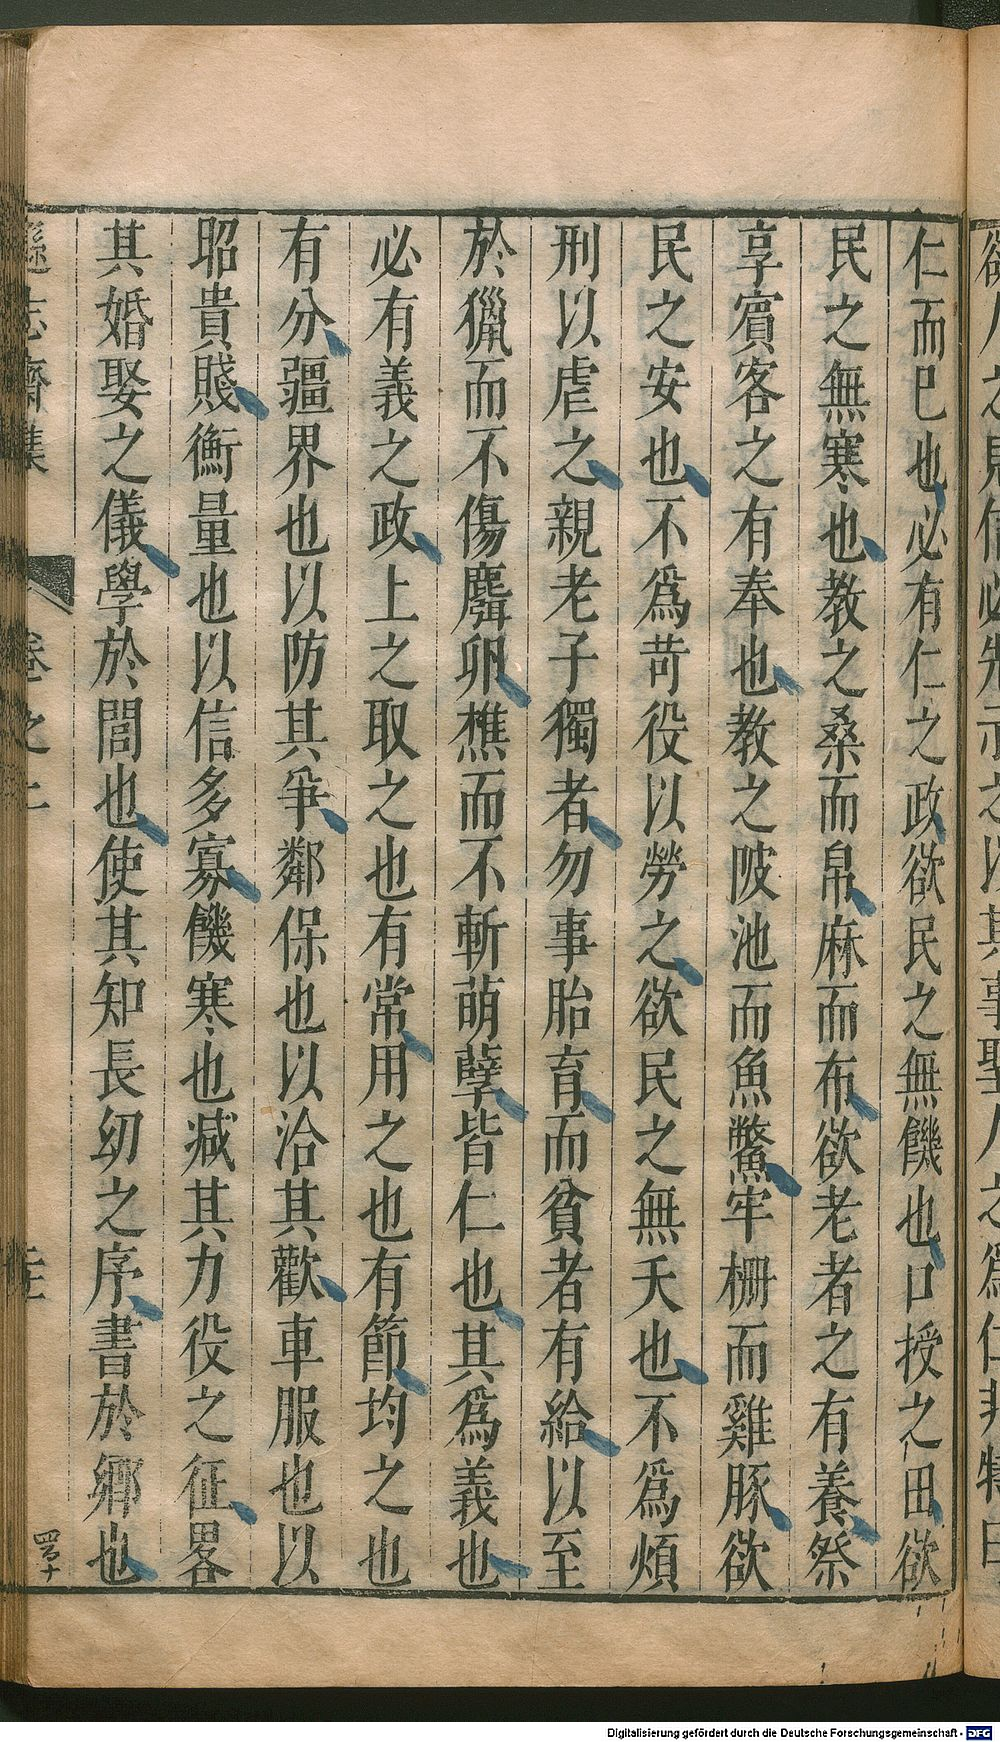 仁而已也必有仁之政欲民之無饑也口授之田欲
民之無寒也教之桑而帛麻而布欲老者之有養祭
享賓客之有奉也教之陂池而魚鱉牢柵而雞豚欲
民之安也不爲苛役以勞之欲民之無夭也不爲煩
刑以虐之親老子獨者勿事胎育而貧者有給以至
於獵而不傷麛卵樵而不斬萌孽皆仁也其爲義也
必有義之政上之取之也有常用之也有節均之也
有分疆界也以防其爭鄰保也以洽其歡車服也以
昭貴賤衡量也以信多寡饑寒也减其力役之征畧
其婚娶之儀學於閭也使其知長幼之序書於鄉也
遜志齋集 卷之二
Digitalisierung gefördert durch die Deutsche Forschungsgemeinschaft - DFG